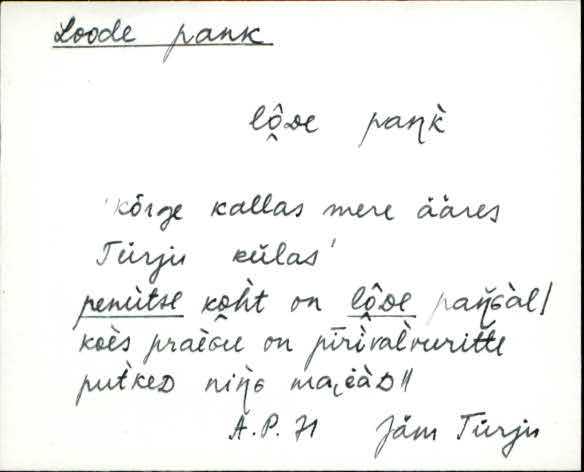 Loode pank
lô̭ᴅe paŋk̀
'kõrge kallas mere ääres
Türju külas'
penùtse ko̭h̀t on lô̭ᴅe paŋ̆ɢàl/
koès praèɢu on pīrìvalvuritte
put̀keᴅ niŋ̀ɢ
A.P. 71 Jäm Türju